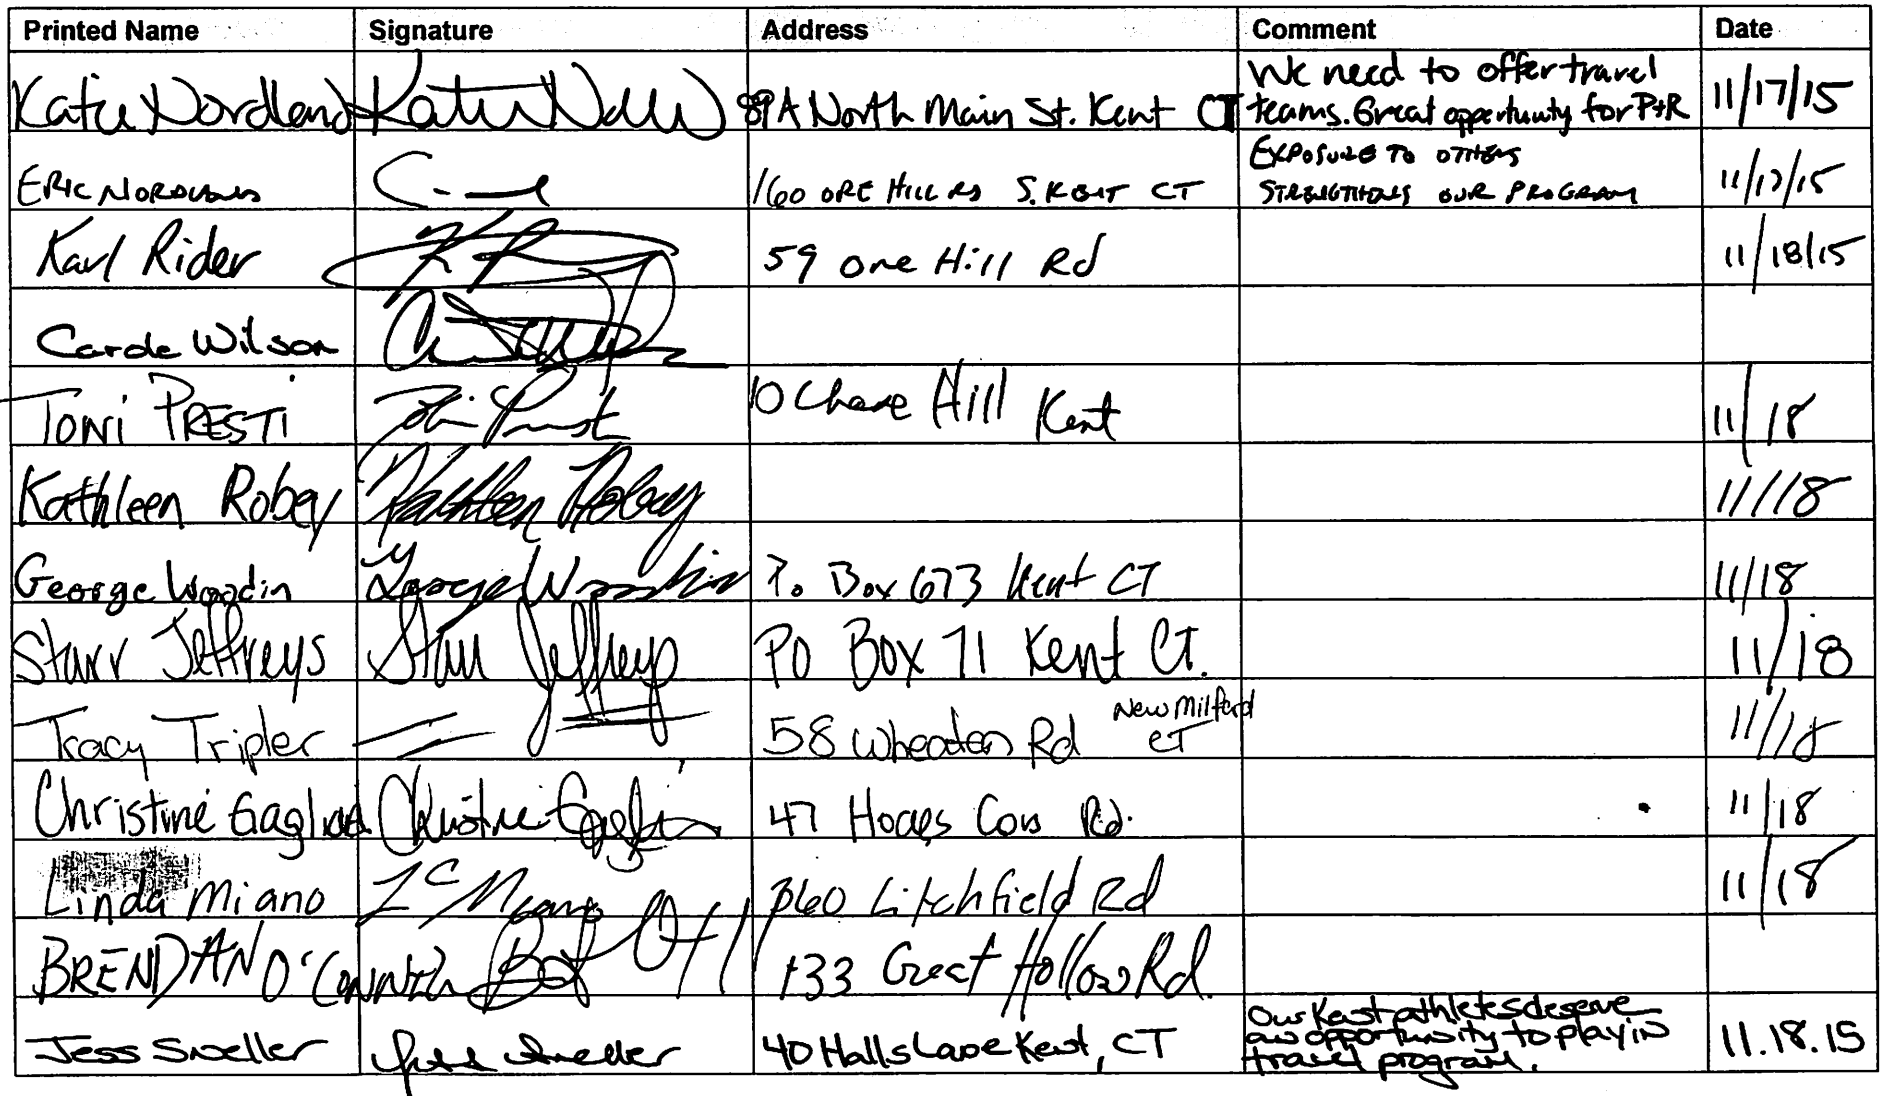 Printed Name Signature Address Comment Date
Katie Nordland 89A North Main St. Kent CT We need to offer travel teams. Great opportunity for P+R 11/17/15
ERIC 160 ORE HILL RD S. KENT CT EXPOSURE TO OTHERS STRENGTHENS OUR PROGRAM 11/17/15
Karl Rider 59 ore Hill Rd 11/18/15
Carole Wilson
TONI PRESTI Toni Presti 10 Chase Hill Kent 11/18
Kathleen Robey Kathleen Robey 11/18
George Woodin George Woodin P.o Box 673 Kent CT 11/18
Starr Jeffreys Starr Jeffreys PO Box 71 Kent Ct. 11/18
Tracy Tripler 58 Wheaton Rd New Milford CT 11/18
Christine Christine 47 Rd. 11/18
Linda Miano 360 Litchfield Rd 11/18
BRENDAN 133 Great Hollow Rd.
Jess Sneller Jess Sneller 40 Halls Lane Kent, CT Our Kent athletes deserve an opportunity to play in travel program. 11.18.15